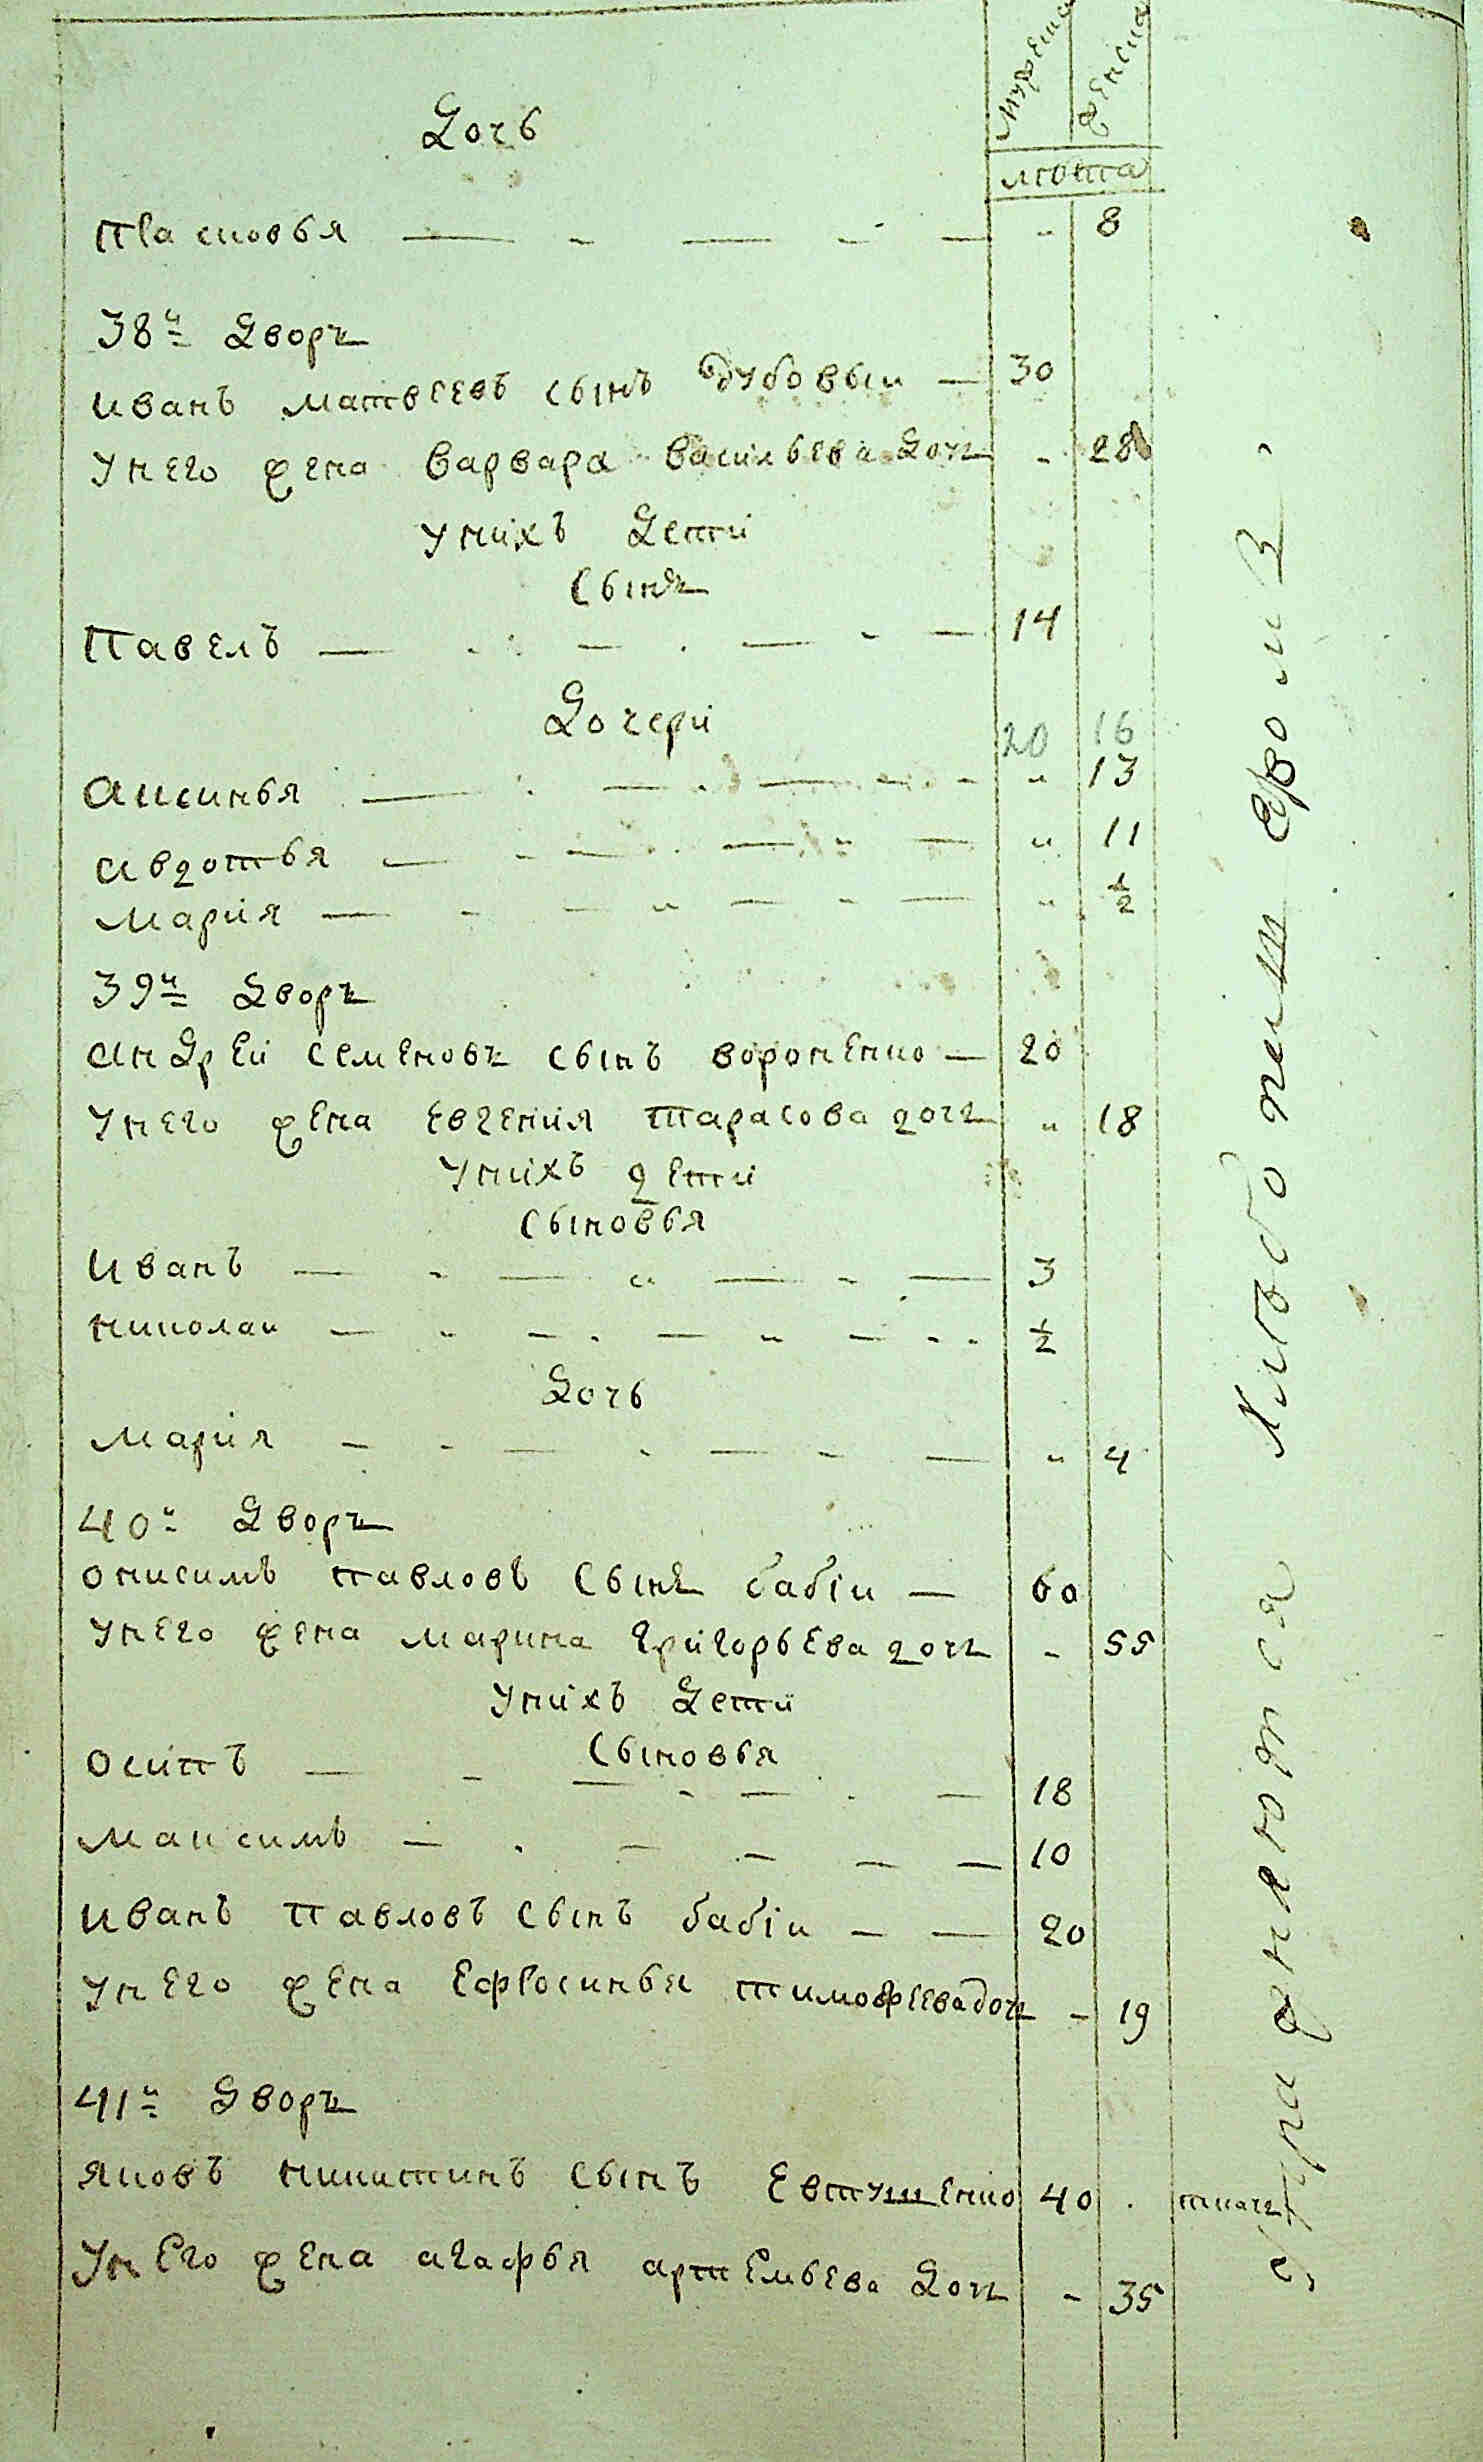 мужеска женска
Дочь
лѣта
Пасковья — - — - — " 8
38й Дворъ
Иванъ Матвеевъ сынъ Дубовыи — 30
У него жена Варвара Васильева Дочъ - 28
У нихъ Дети
Сынъ
Павелъ — - — . — - — 14
Дочери
20 16
Аксинья " 13
Авдотья " 11
Мария " 1/2
39й Дворъ
Андрей Семеновъ сынъ Вороненко — 20
У него жена Евгения Тарасова дочъ " 18
У нихъ дети
Сыновья
Иванъ — - — " — - — 3
Николаи 1/2
Дочь
Мария " 4
40й Дворъ
Онисимъ Павловъ Сынъ бабiи — 60
У него жена Марина Григорьева дочъ - 55
У нихъ Дети
Сыновья
Осипъ 18
Максимъ 10
Иванъ Павловъ Сынъ бабiи — — 20
У него жена Ефросинья Тимофеева дочъ - 19
41й Дворъ
Яковъ Никитинъ сынъ Евтушенко 40 . ткачъ
У него жена Агафья Артемьева Дочъ - 35
упражняются хлебопашеством